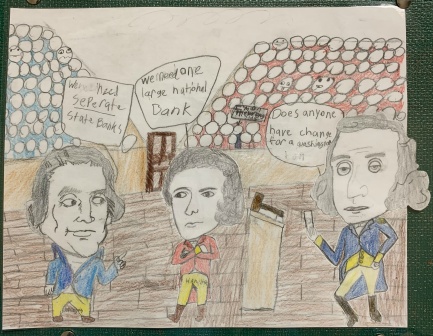 We need
seperate
state Banks
we need one
large national
Bank
Does anyone
have change
for a washington